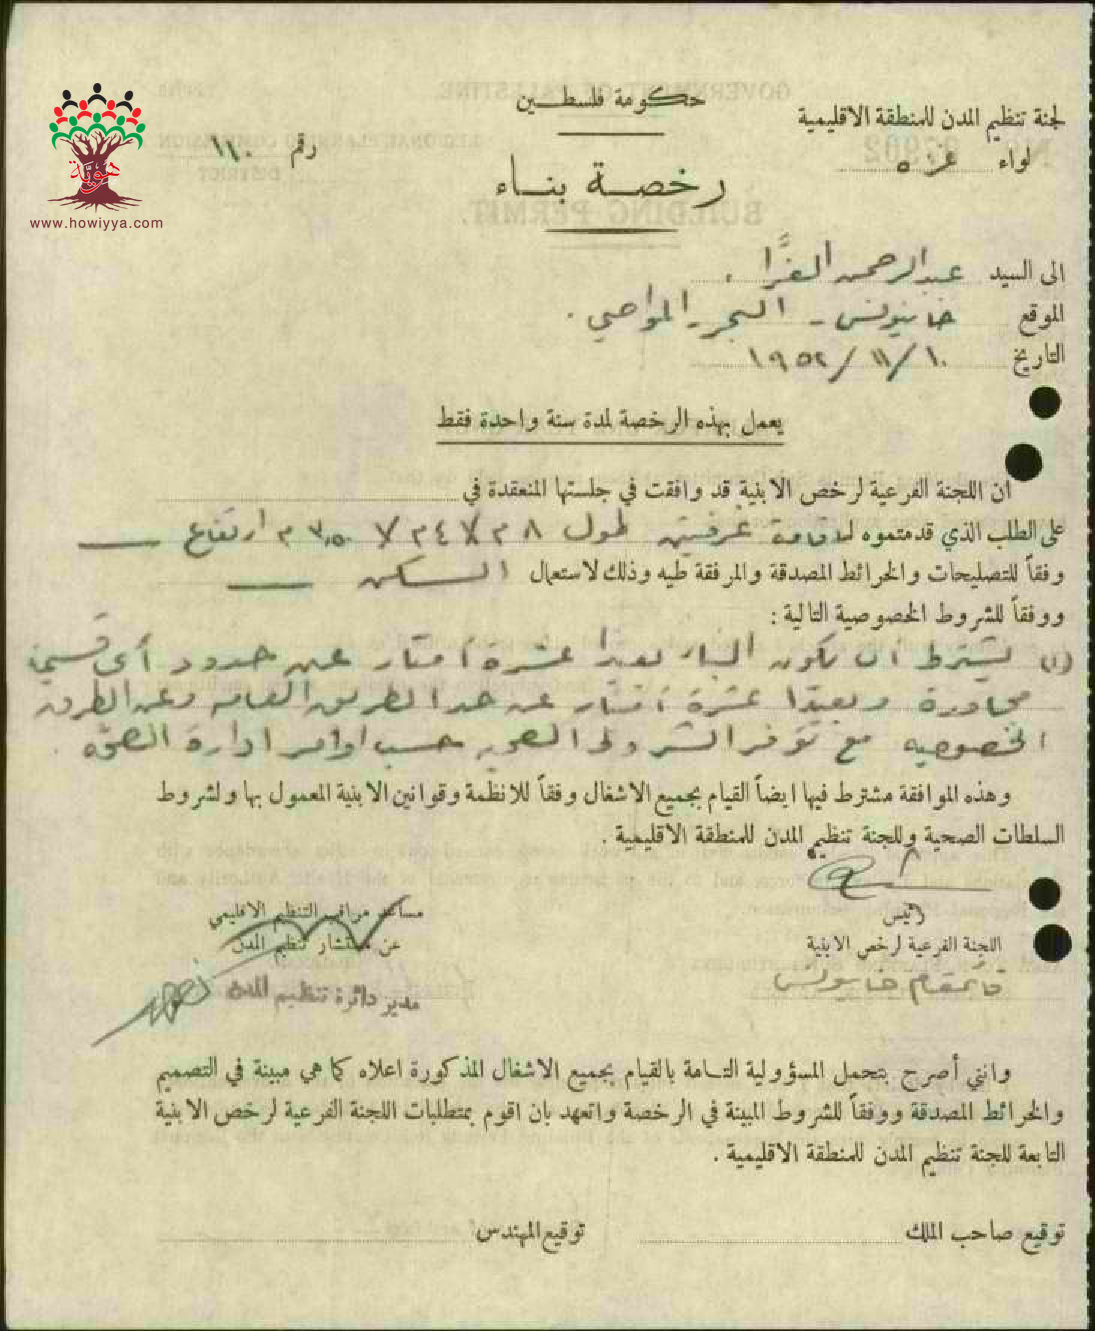 حكومة فلسطين
لجنة تنظيم المدن للمنطقة الاقليمية
لواء غزه
رقم ١١٠
رخصة بناء
هوية
www.howiyya.com
الى السيد عبدالرحمن الفرَّا .
الموقع خانيونس - البحر - المواصي .
التاريخ ١٠ / ١١ / ١٩٥٢
يعمل بهذه الرخصة لمدة سنة واحدة فقط
ان اللجنة الفرعية لرخص الابنية قد وافقت في جلستها المنعقدة في
على الطلب الذي قدمتموه لاقامة غرفتين طول ٨ م × ٤ م × ٣٫٥٠ م ارتفاع
وفقاً للتصليحات والخرائط المصدقة والمرفقة طيه وذلك لاستعمال السكن
ووفقاً للشروط الخصوصية التالية :
(١) يشترط ان يكون البناء بعيدا عشرة أمتار عن حدود أي قسيمة
مجاورة وبعيدا عشرة أمتار عن حد الطريق العامه وعن الطرق
الخصوصيه مع توفر الشروط الصحيه حسب اوامر ادارة الصحه .
وهذه الموافقة مشترط فيها ايضاً القيام بجميع الاشغال وفقاً للانظمة وقوانين الابنية المعمول بها ولشروط
السلطات الصحية وللجنة تنظيم المدن للمنطقة الاقليمية .
رئيس
اللجنة الفرعية لرخص الابنية
قائمقام خانيونس
مساعد مراقب التنظيم الاقليمي
عن مستشار تنظيم المدن
مدير دائرة تنظيم المدن
وانني أصرح بتحمل المسؤولية التامة بالقيام بجميع الاشغال المذكورة اعلاه كما هي مبينة في التصميم
والخرائط المصدقة ووفقاً للشروط المبينة في الرخصة واتعهد بان اقوم بمتطلبات اللجنة الفرعية لرخص الابنية
التابعة للجنة تنظيم المدن للمنطقة الاقليمية .
توقيع صاحب الملك
توقيع المهندس